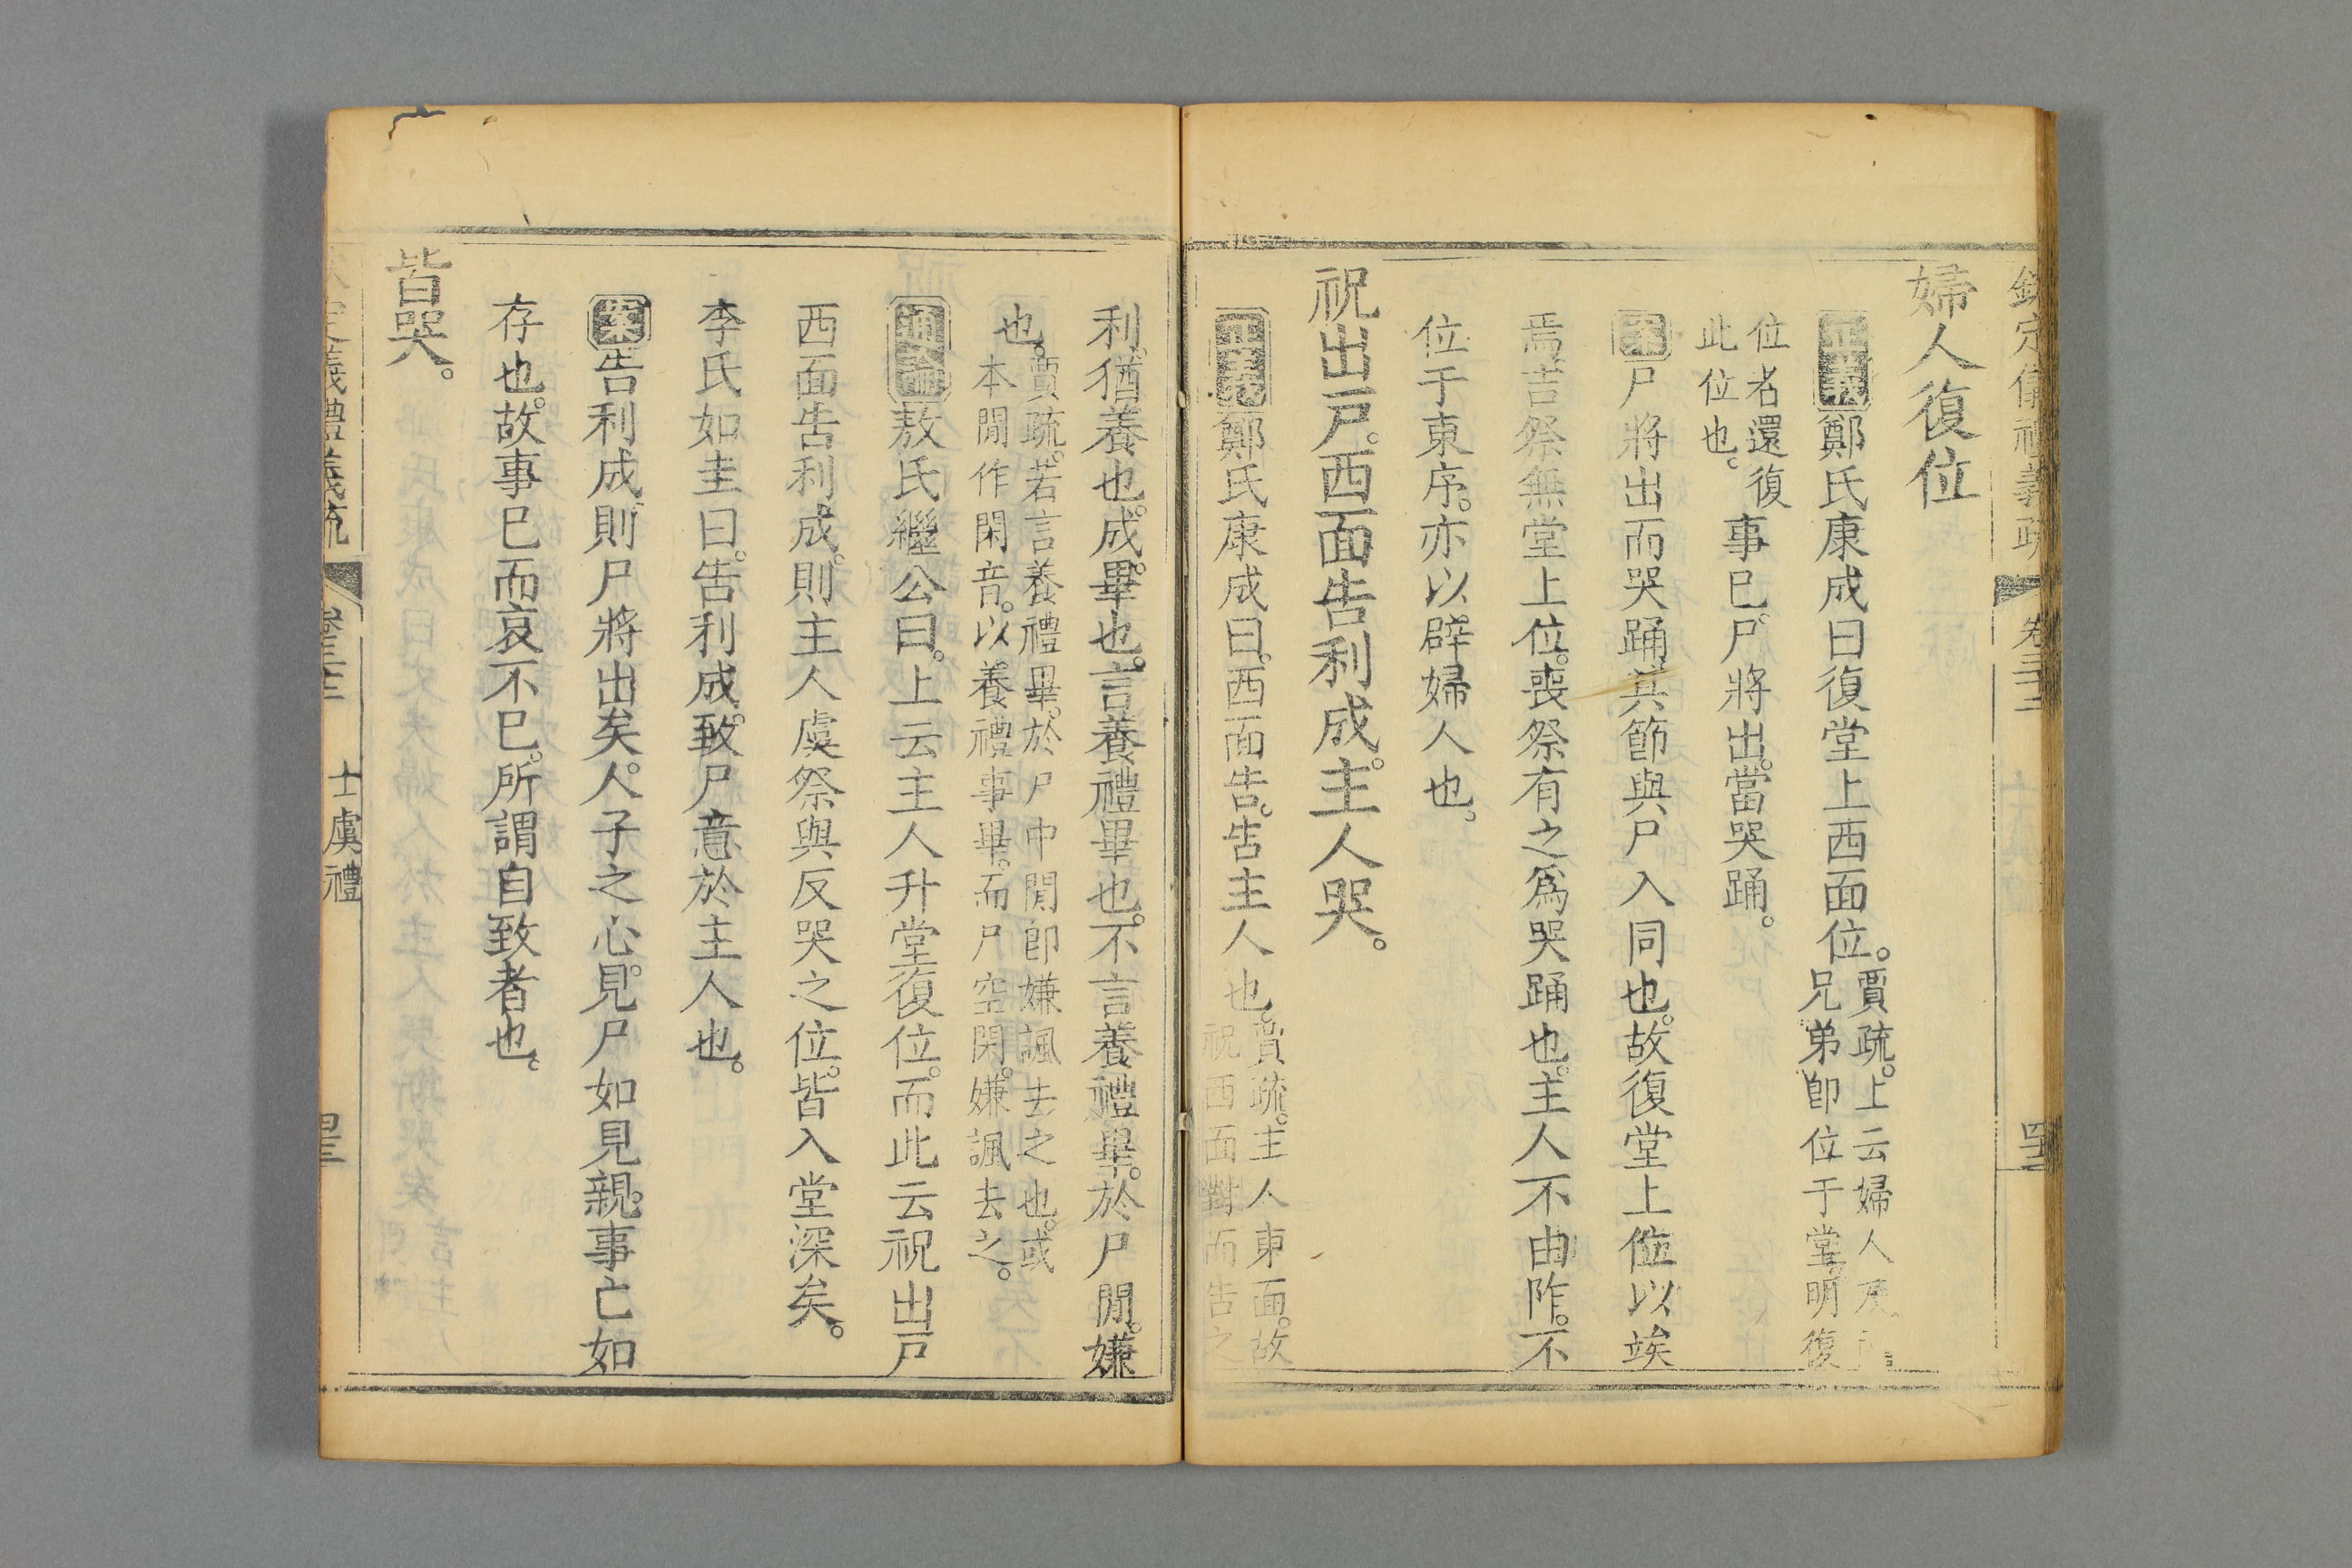 欽定儀禮義疏 卷三十三
婦人復位
正義鄭氏康成曰復堂上西面位。賈疏。上云婦人及
兄弟即位于堂。明復
位者還復
此位也。事已。尸將出。當哭踊。
案尸將出而哭踊其節與尸入同也。故復堂上位以竢
焉。吉祭無堂上位。喪祭有之爲哭踊也。主人不由阼。不
位于東序。亦以辟婦人也。
祝出戸。西面告利成。主人哭。
正義鄭氏康成曰。西面告。告主人也。賈疏。主人東面。故
祝西面對而告之
利。猶養也。成。畢也。言養禮畢也。不言養禮畢。於尸閒。嫌
也。賈疏。若言養禮畢。於尸中閒卽嫌諷去之也。或
本閒作閑音。以養禮事畢。而尸空閑。嫌諷去之。
通論敖氏繼公曰。上云主人升堂復位。而此云祝出戸
西面告利成。則主人虞祭與反哭之位。皆入堂深矣。
李氏如圭曰。告利成。致尸意於主人也。
案告利成。則尸將出矣。人子之心。見尸如見親。事亡如
存也。故事已而哀不已。所謂自致者也。
皆哭。
儀禮義疏 士虞禮